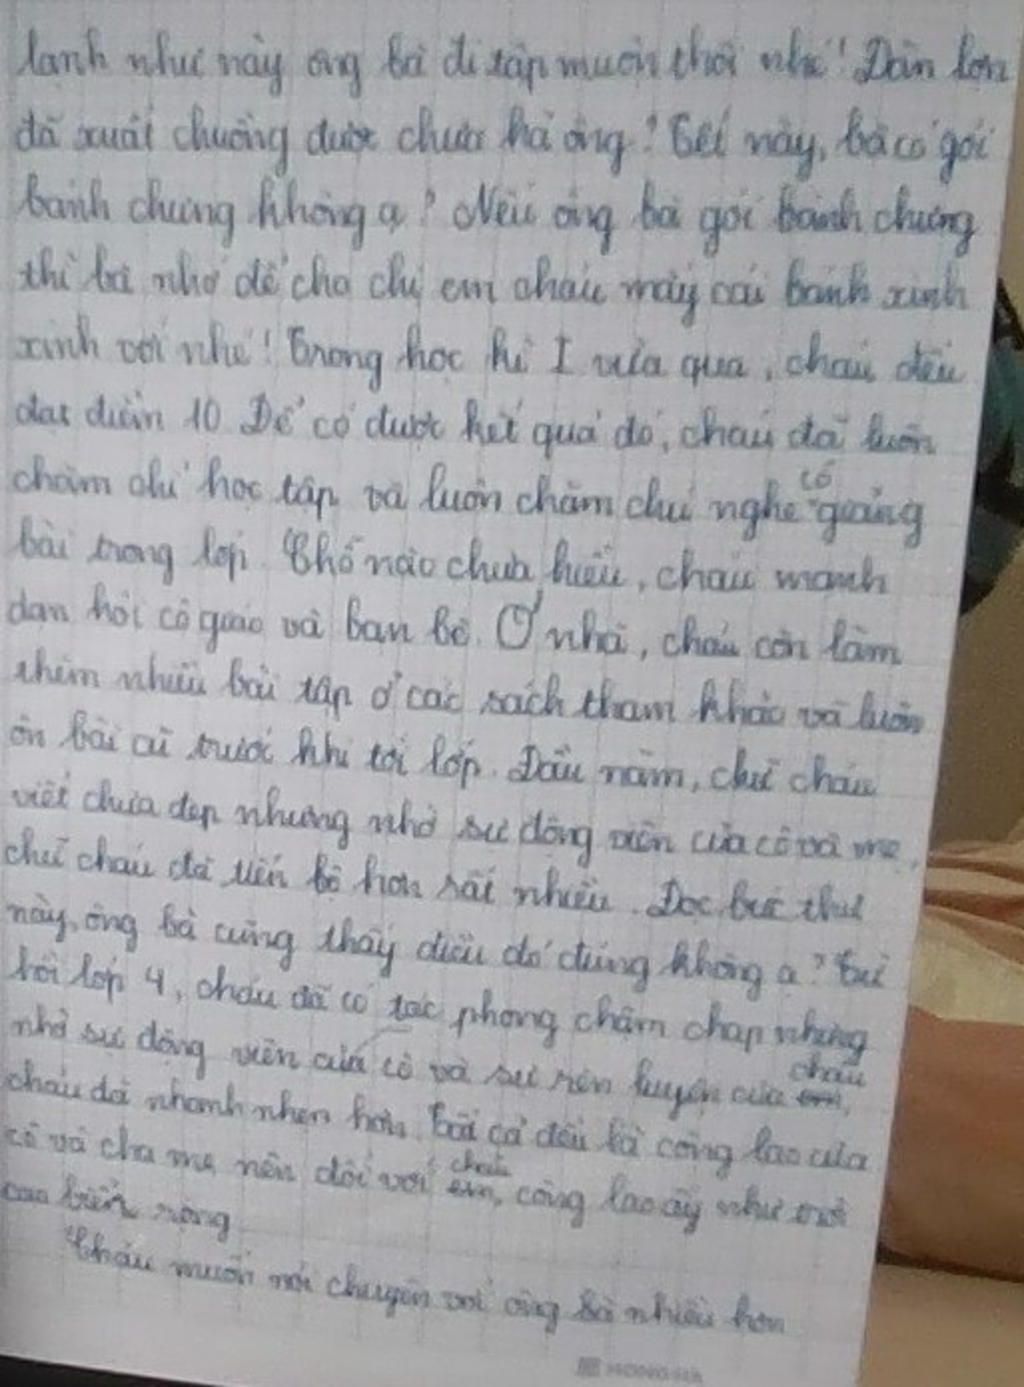 lạnh như này ông bà đi tập muộn thôi nhé! Đàn lợn
đã xuất chuồng được chưa hả ông? Tết này, bà có gói
bánh chưng không ạ? Nếu ông bà gói bánh chưng
thì bà nhớ để cho chị em cháu mấy cái bánh xinh
xinh với nhé! Trong học kì I vừa qua, cháu đều
đạt điểm 10. Để có được kết quả đó, cháu đã luôn
chăm chỉ học tập và luôn chăm chú nghe cô giảng
bài trong lớp. Chỗ nào chưa hiểu, cháu mạnh
dạn hỏi cô giáo và bạn bè. Ở nhà, cháu còn làm
thêm nhiều bài tập ở các sách tham khảo và luôn
ôn bài cũ trước khi tới lớp. Đầu năm, chữ cháu
viết chưa đẹp nhưng nhờ sự động viên của cô và mẹ,
chữ cháu đã tiến bộ hơn rất nhiều. Đọc bức thư
này, ông bà cũng thấy điều đó đúng không ạ? Từ
hồi lớp 4, cháu đã có tác phong chậm chạp nhưng
nhờ sự động viên của cô và sự rèn luyện của cháu,
cháu đã nhanh nhẹn hơn. Tất cả đều là công lao của
cô và cha mẹ nên đối với cháu, công lao ấy như trời
cao biển rộng.
Cháu muốn nói chuyện với ông bà nhiều hơn
HONG HA